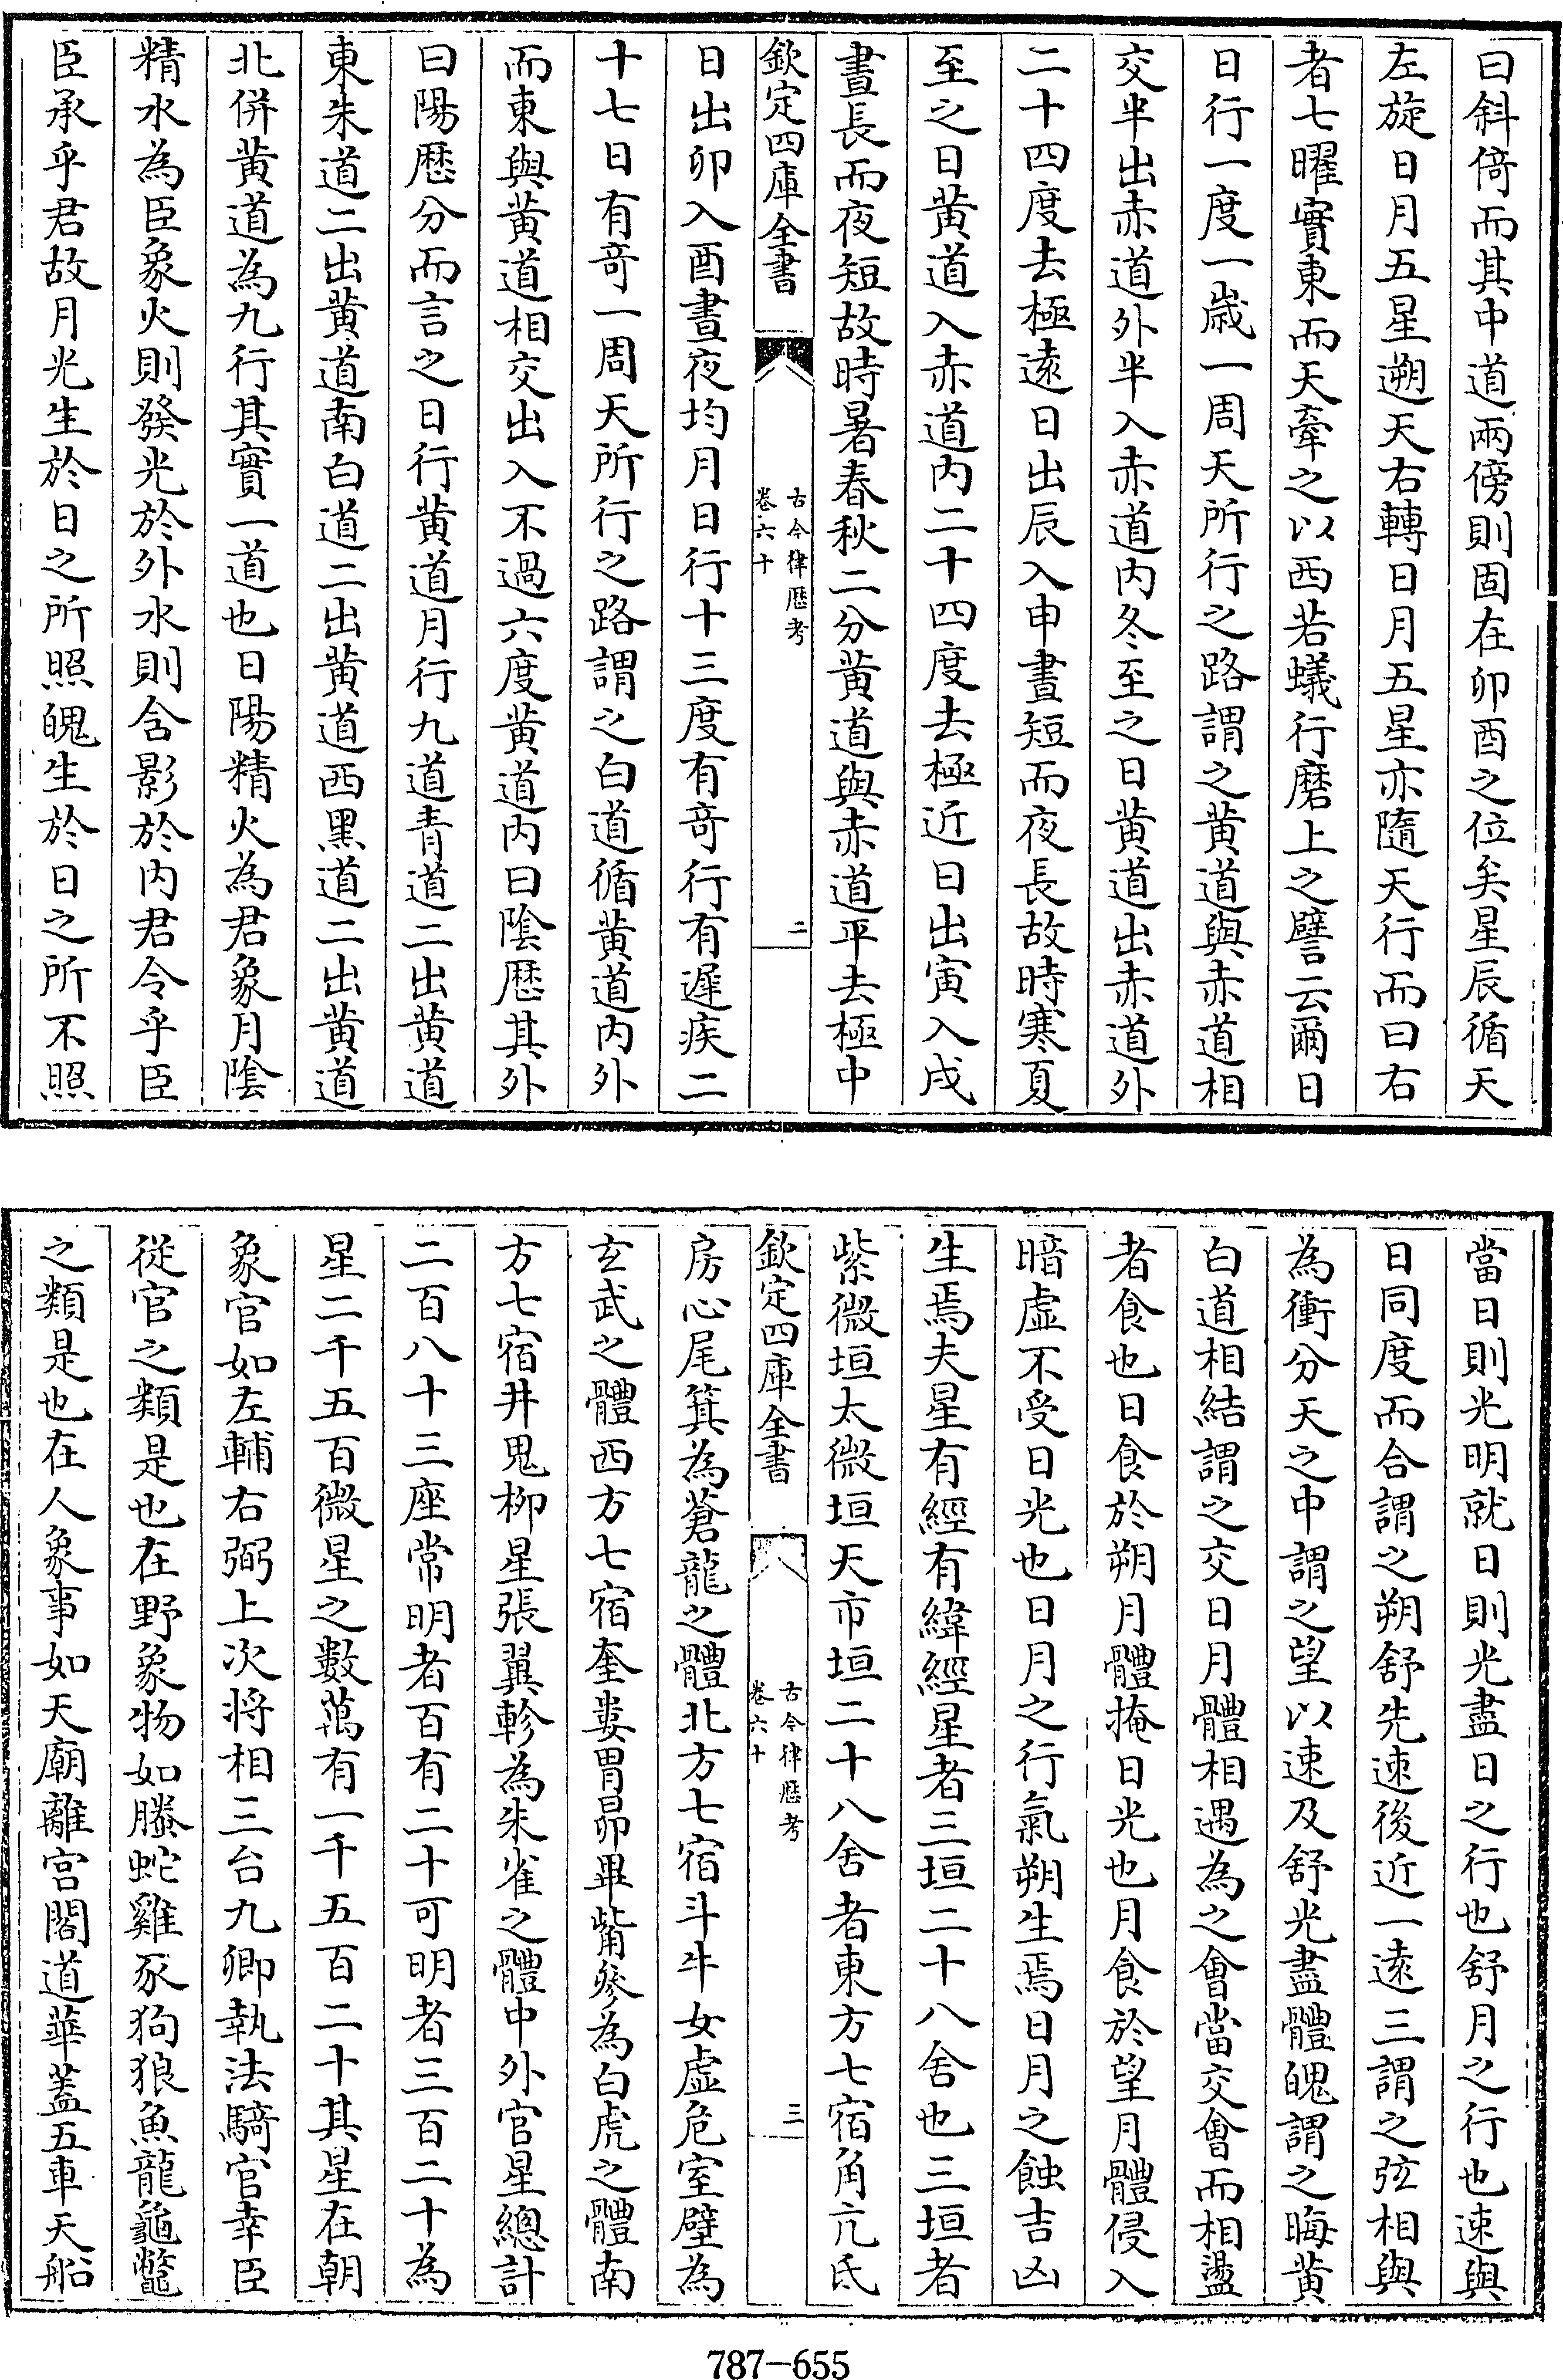 曰斜倚而其中道兩傍則固在卯酉之位矣星辰循天
左旋日月五星遡天右轉日月五星亦隨天行而曰右
者七曜實東而天牽之以西若蟻行磨上之譬云爾日
日行一度一歲一周天所行之路謂之黄道與赤道相
交半出赤道外半入赤道内冬至之日黄道出赤道外
二十四度去極遠日出辰入申晝短而夜長故時寒夏
至之日黄道入赤道内二十四度去極近日出寅入戌
晝長而夜短故時暑春秋二分黄道與赤道平去極中
欽定四庫全書
古今律厯考
卷六十
二
日出卯入酉晝夜均月日行十三度有奇行有遲疾二
十七日有奇一周天所行之路謂之白道循黄道内外
而東與黄道相交出入不過六度黄道内曰陰厯其外
曰陽厯分而言之日行黄道月行九道青道二出黄道
東朱道二出黄道南白道二出黄道西黑道二出黄道
北併黄道為九行其實一道也日陽精火為君象月陰
精水為臣象火則發光於外水則含影於内君令乎臣
臣承乎君故月光生於日之所照魄生於日之所不照
當日則光明就日則光盡日之行也舒月之行也速與
日同度而合謂之朔舒先速後近一遠三謂之弦相與
為衝分天之中謂之望以速及舒光盡體魄謂之晦黄
白道相結謂之交日月體相遇為之會當交會而相盪
者食也日食於朔月體掩日光也月食於望月體侵入
暗虛不受日光也日月之行氣朔生焉日月之蝕吉凶
生焉夫星有經有緯經星者三垣二十八舍也三垣者
紫微垣太微垣天市垣二十八舍者東方七宿角亢氐
欽定四庫全書
古今律厯考
卷六十
三
房心尾箕為蒼龍之體北方七宿斗牛女虛危室壁為
玄武之體西方七宿奎婁胃昴畢觜參為白虎之體南
方七宿井鬼柳星張翼軫為朱雀之體中外官星總計
二百八十三座常明者百有二十可明者三百二十為
星二千五百微星之數萬有一千五百二十其星在朝
象官如左輔右弼上次将相三台九卿執法騎官幸臣
從官之類是也在野象物如螣蛇雞豕狗狼魚龍龜鼈
之類是也在人象事如天廟離宫閣道華蓋五車天船
787-655